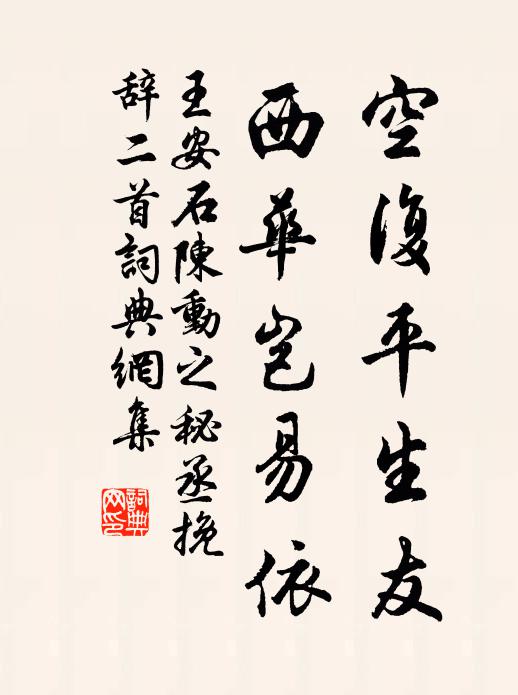 空復平生友
西華豈易依
王安石陳動之秘丞挽
辭二首詞典網集
詞典网印